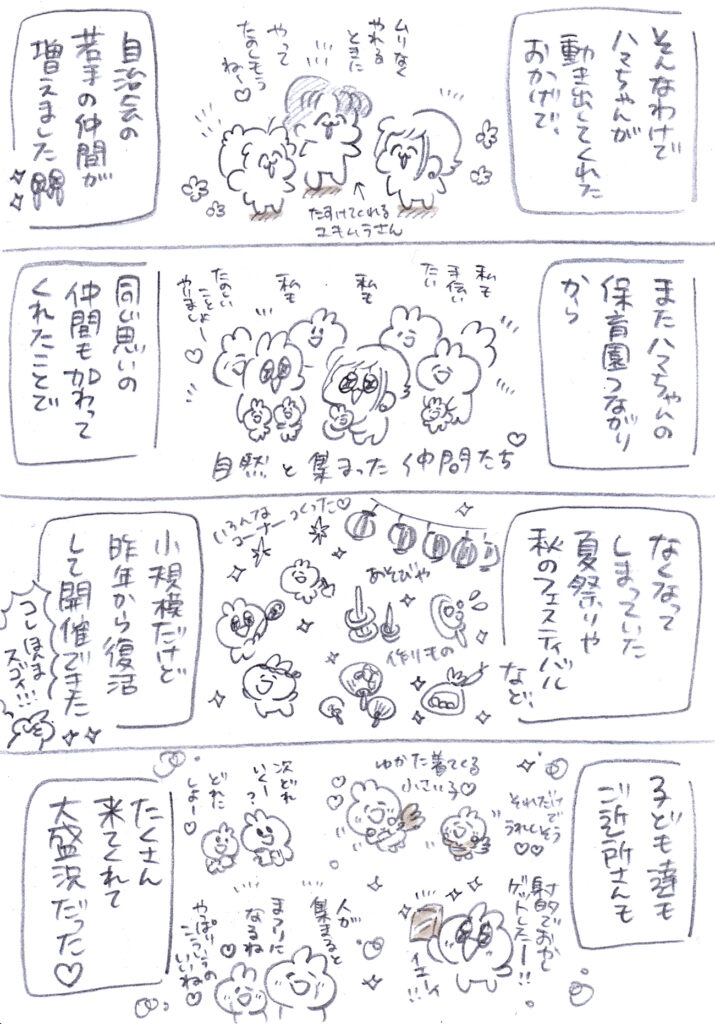 そんなわけで
ハマちゃんが
動き出してくれた
おかげで、
ムリなく
やれる
ときに
やって
たのしもう
ねー♡
たすけてくれる
ユキムラさん
自治会の
若手の仲間が
増えました
またハマちゃんの
保育園つながり
から
私も
手伝い
たい
私も
私も
たのしい
ことしよー
やりましょ♡
自然と集まった仲間たち♡
同じ思いの
仲間も加わって
くれたことで
なくなって
しまっていた
夏祭りや
秋のフェスティバル
など、
いろんな
コーナーつくった♡
あそびや
作りもの
小規模だけど
昨年から復活
して開催できた
コレほんま
スゴイ!!!
子ども達も
ご近所さんも
ゆかた着てくる
小さい子♡
それだけでもう
うれしい♡♡
次どれ
いくー?
どれに
しよー♡
射的でおかし
ゲットしたー!!
イエーイ!!
人が
集まると
まつりに
なるね
やっぱりこういうの
いいね♡
たくさん
来てくれて
大盛況だった♡